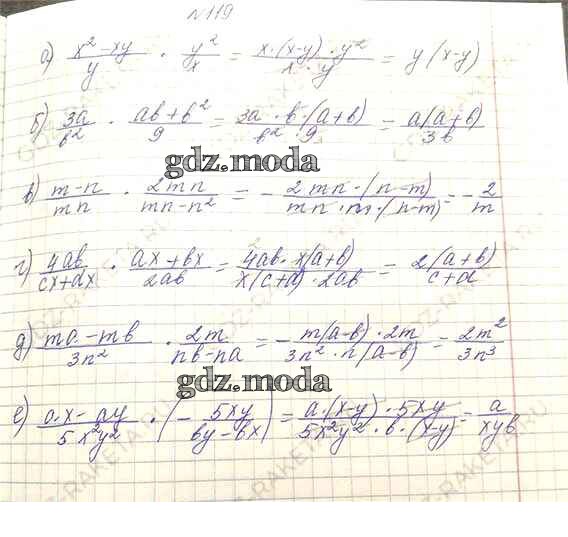 №119
а) (x² - xy)/y · y²/x = (x·(x-y)·y²)/(x·y) = y(x-y)
б) 3a/b² · (ab+b²)/9 = (3a·b·(a+b))/(b²·9) = a(a+b)/3b
gdz.moda
в) (m-n)/mn · 2mn/(mn-n²) = - (2mn·(n-m))/(mn·m·(n-m)) = - 2/m
г) 4ab/(cx+dx) · (ax+bx)/2ab = (4ab·x(a+b))/(x(c+d)·2ab) = 2(a+b)/(c+d)
д) (ma-mb)/3n² · 2m/(nb-na) = - (m(a-b)·2m)/(3n²·n(a-b)) = 2m²/3n³
gdz.moda
е) (a·x-ay)/5x²y² · (- 5xy/(by-bx)) = (a·(x-y)·5xy)/(5x²y²·b·(x-y)) = a/xyb